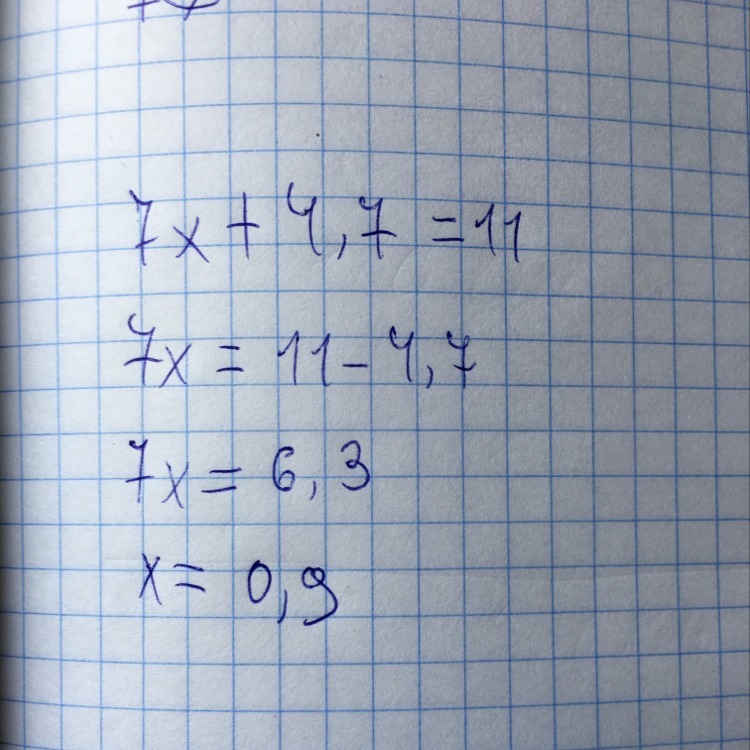 7x + 4,7 = 11
7x = 11 - 4,7
7x = 6,3
x = 0,9